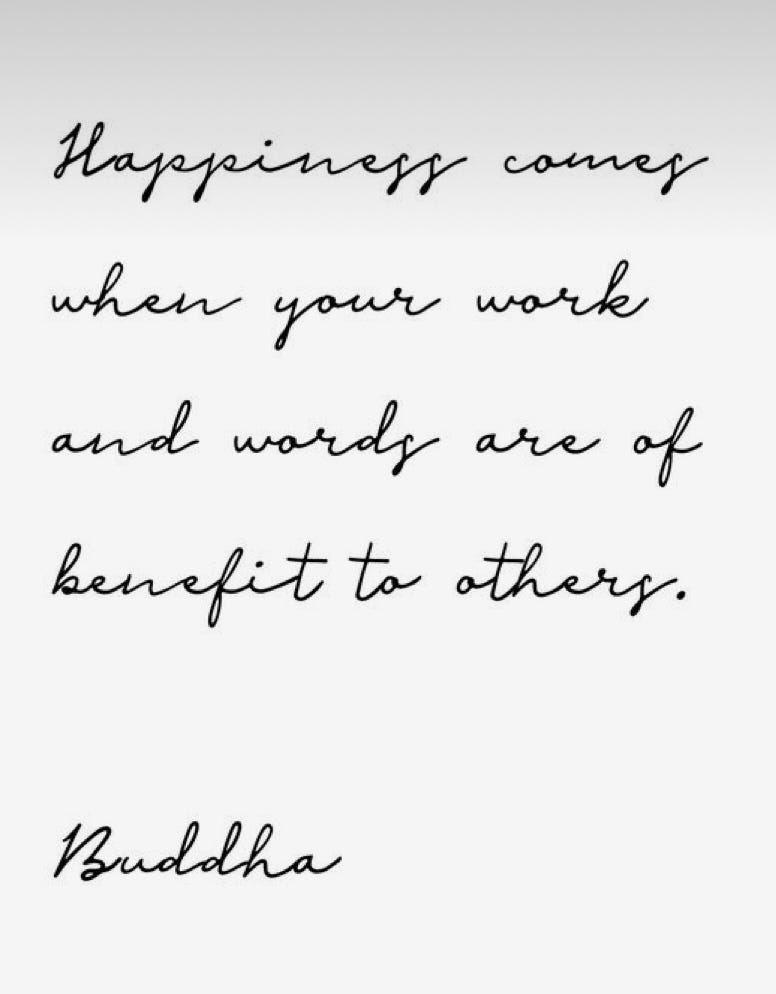 Happiness comes
when your work
and words are of
benefit to others.
Buddha